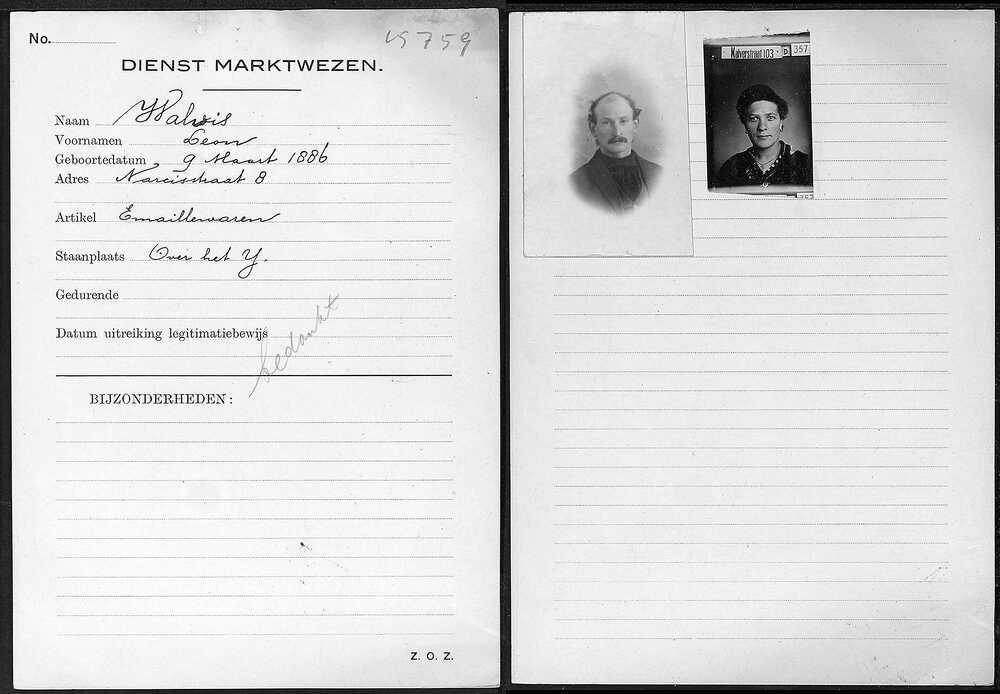 No.
15759
DIENST MARKTWEZEN.
Naam Walvis
Voornamen Leon
Geboortedatum 9 Maart 1886
Adres Narcisstraat 8
Artikel Emaillewaren
Staanplaats Over het Y.
Gedurende
Datum uitreiking legitimatiebewijs
bedankt
BIJZONDERHEDEN:
Z. O. Z.
Kalverstraat 103 · D 357